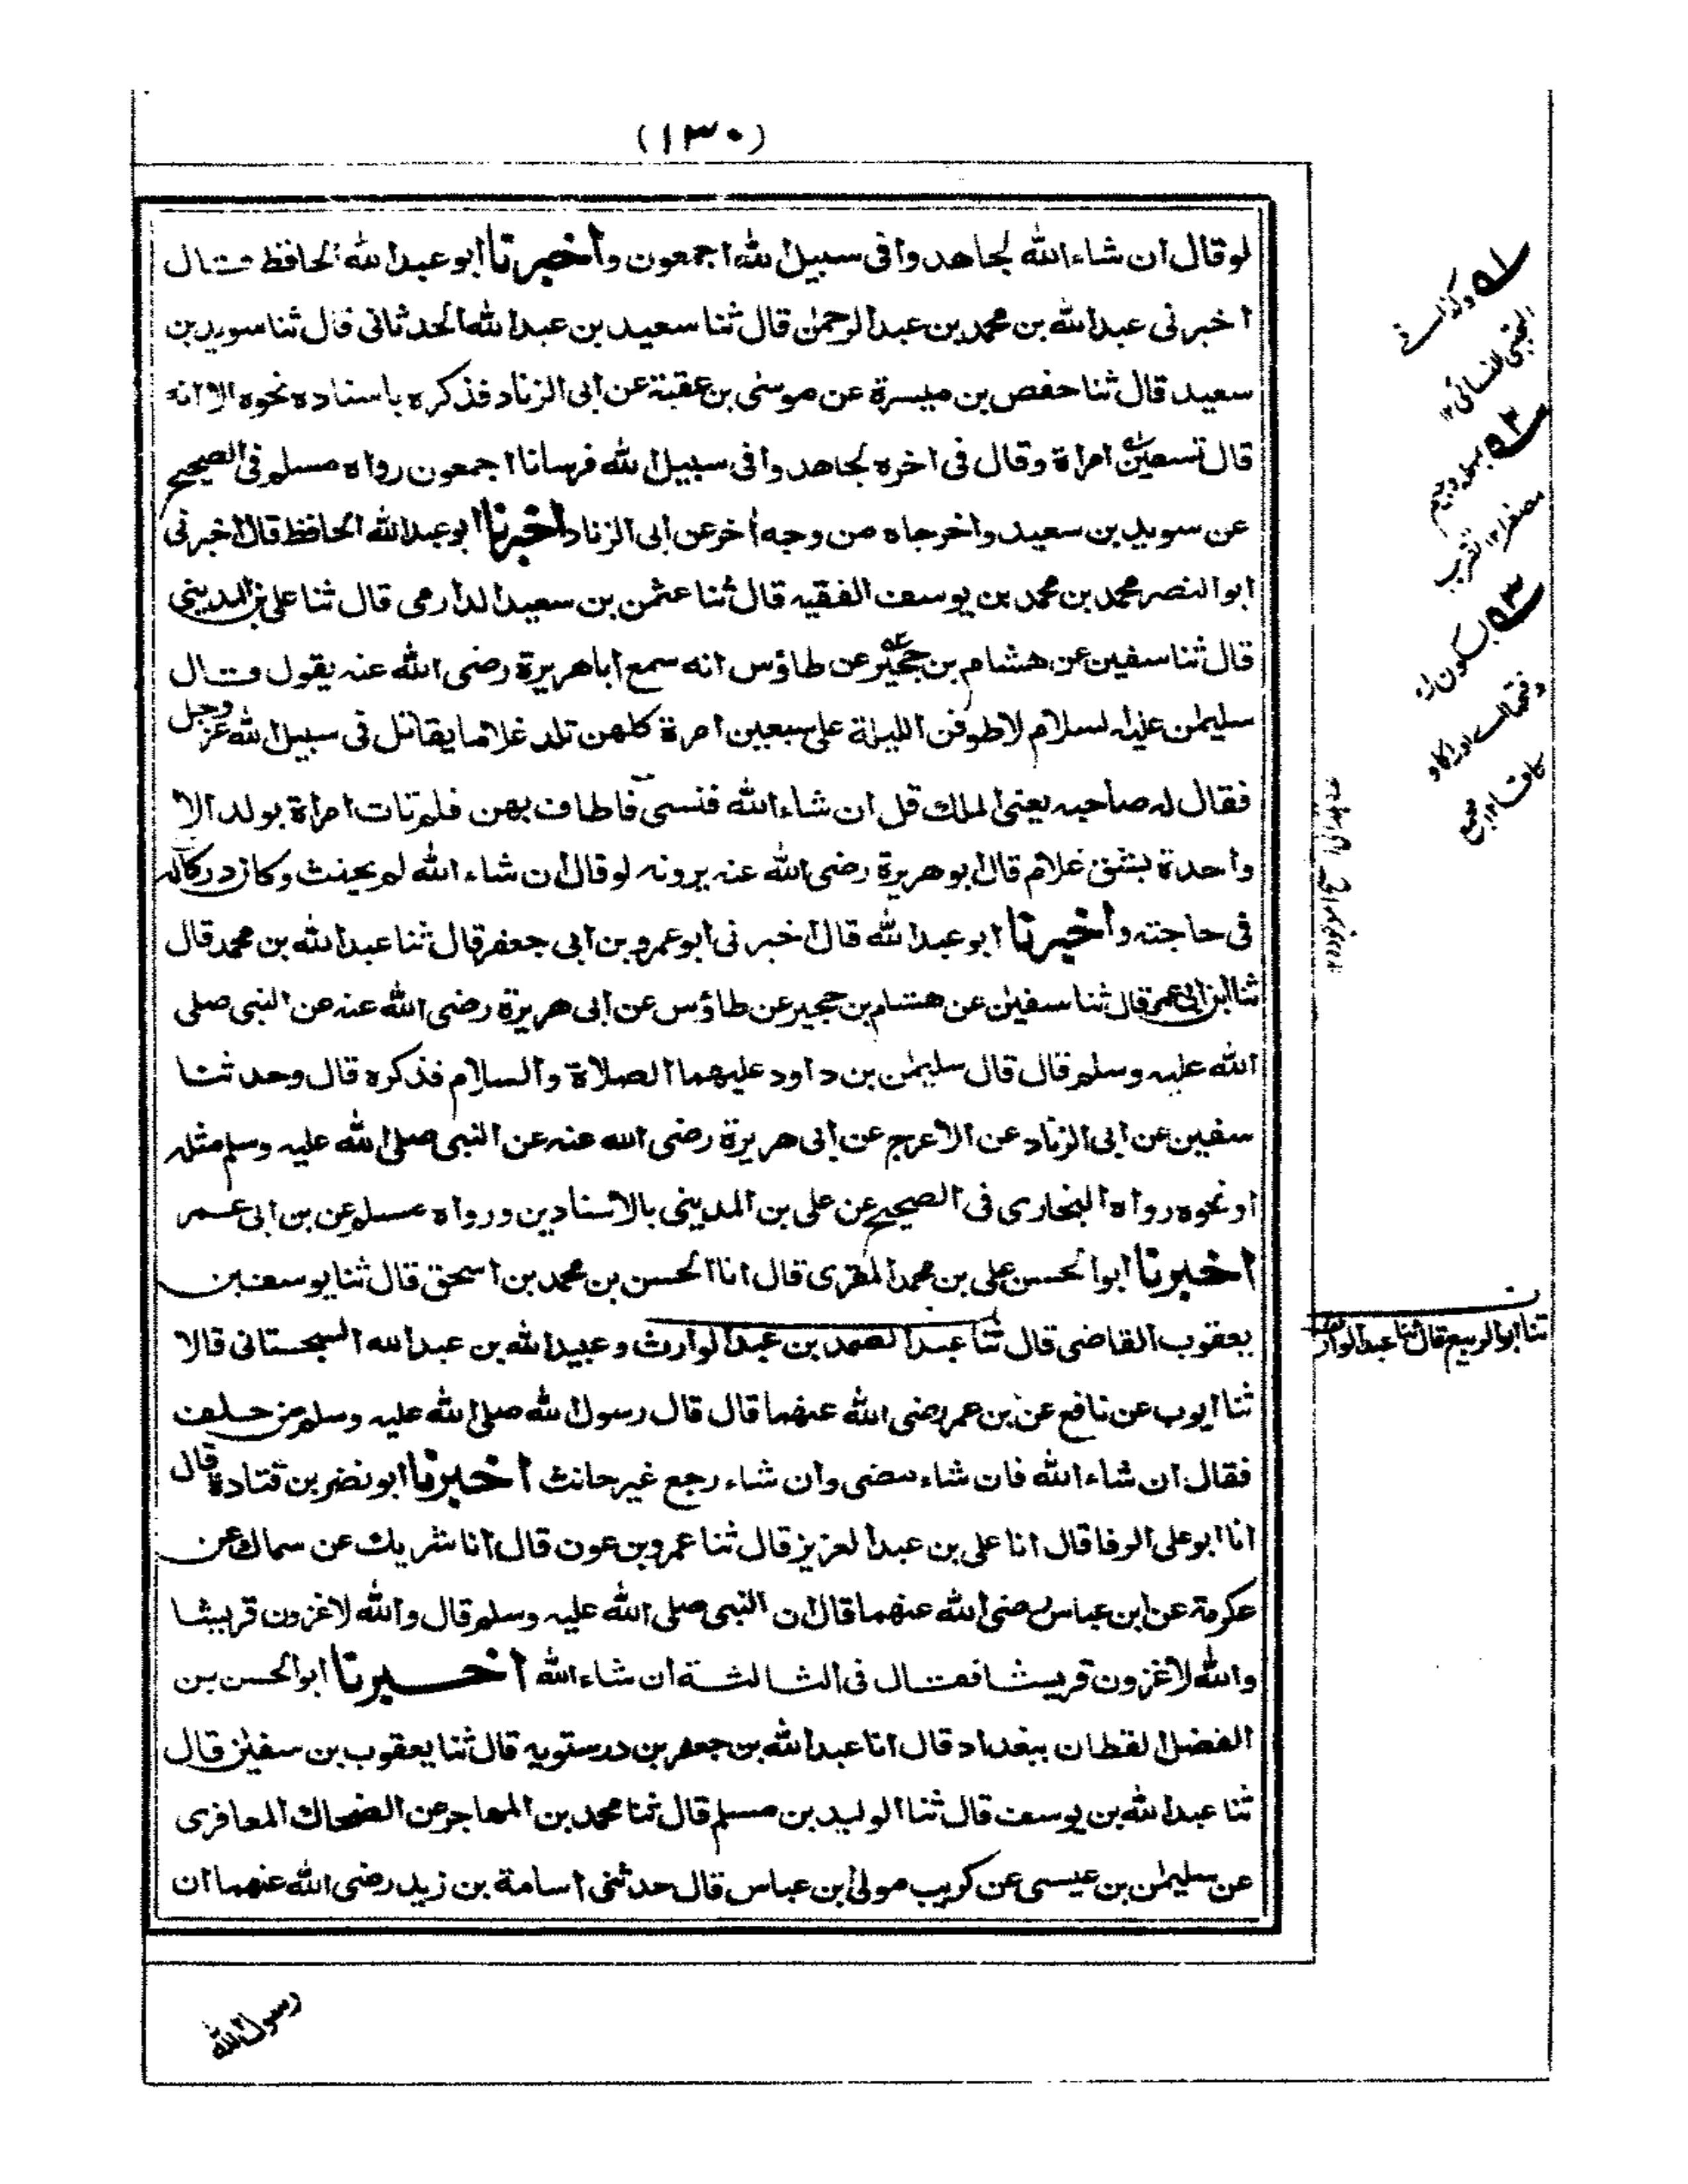 (١٣٠)
لو قال ان شاء الله لجاهدوا في سبيل الله اجمعون واخبرنا ابو عبد الله الحافظ قال
اخبرني عبد الله بن محمد بن عبد الرحمٰن قال ثنا سعيد بن عبد الله الحدثاني قال ثنا سويد بن
سعيد قال ثنا حفص بن ميسرة عن موسى بن عقبة عن ابي الزناد فذكره باسناده نحوه الا انه
قال تسعين امراة وقال في اخره لجاهدوا في سبيل الله فرسانا اجمعون رواه مسلم في الصحيح
عن سويد بن سعيد واخرجاه من وجه اٰخر عن ابي الزناد اخبرنا ابو عبد الله الحافظ قال اخبرني
ابو النضر محمد بن محمد بن يوسف الفقيه قال ثنا عثمٰن بن سعيد الدارمي قال ثنا علي بن المديني
قال ثنا سفين عن هشام بن حجير عن طاؤس انه سمع ابا هريرة رضي الله عنه يقول قال
سليمٰن عليه السلام لاطوفن الليلة على سبعين امرة كلهن تلد غلاما يقاتل في سبيل الله عز وجل
فقال له صاحبه يعني الملك قل ان شاء الله فنسي فاطاف بهن فلم تات امراة بولد الا
واحدة بشق غلام قال ابو هريرة رضي الله عنه يرونه لو قال ان شاء الله لم يحنث وكان دركا له
في حاجته واخبرنا ابو عبد الله قال اخبرني ابو عمرو بن ابي جعفر قال ثنا عبد الله بن محمد قال
ثنا ابن ابي عمر قال ثنا سفيٰن عن هشام بن حجير عن طاؤس عن ابي هريرة رضي الله عنه عن النبي صلى
الله عليه وسلم قال قال سليمٰن بن داود عليهما الصلاة والسلام فذكره قال وحدثنا
سفين عن ابي الزناد عن الاعرج عن ابي هريرة رضي الله عنه عن النبي صلى الله عليه وسلم مثله
او نحوه رواه البخاري في الصحيح عن علي بن المديني بالاسنادين ورواه مسلم عن بن ابي عمر
اخبرنا ابو الحسن علي بن محمد المقري قال انا الحسن بن محمد بن اسحق قال ثنا يوسف بن
يعقوب القاضي قال ثنا عبد الصمد بن عبد الوارث وعبيد الله بن عبد الله السجستاني قالا
ثنا ابو الربيع قال ثنا عبد الوارث
ثنا ايوب عن نافع عن بن عمر رضي الله عنهما قال قال رسول الله صلى الله عليه وسلم من حلف
فقال ان شاء الله فان شاء مضى وان شاء رجع غير حانث اخبرنا ابو نضر بن قتادة قال
انا ابو علي الرفا قال انا علي بن عبد العزيز قال ثنا عمرو بن عون قال انا شريك عن سماك عن
عكرمة عن ابن عباس رضي الله عنهما قال ان النبي صلى الله عليه وسلم قال والله لاغزون قريشا
والله لاغزون قريشا فقال في الثالثة ان شاء الله اخبرنا ابو الحسن بن
الفضل القطان ببغداد قال انا عبد الله بن جعفر بن درستويه قال ثنا يعقوب بن سفيٰن قال
ثنا عبد الله بن يوسف قال ثنا الوليد بن مسلم قال ثنا محمد بن المهاجر عن الضحاك المعافري
عن سليمٰن بن عيسى عن كريب مولى بن عباس قال حدثني اسامة بن زيد رضي الله عنهما ان
رسول الله